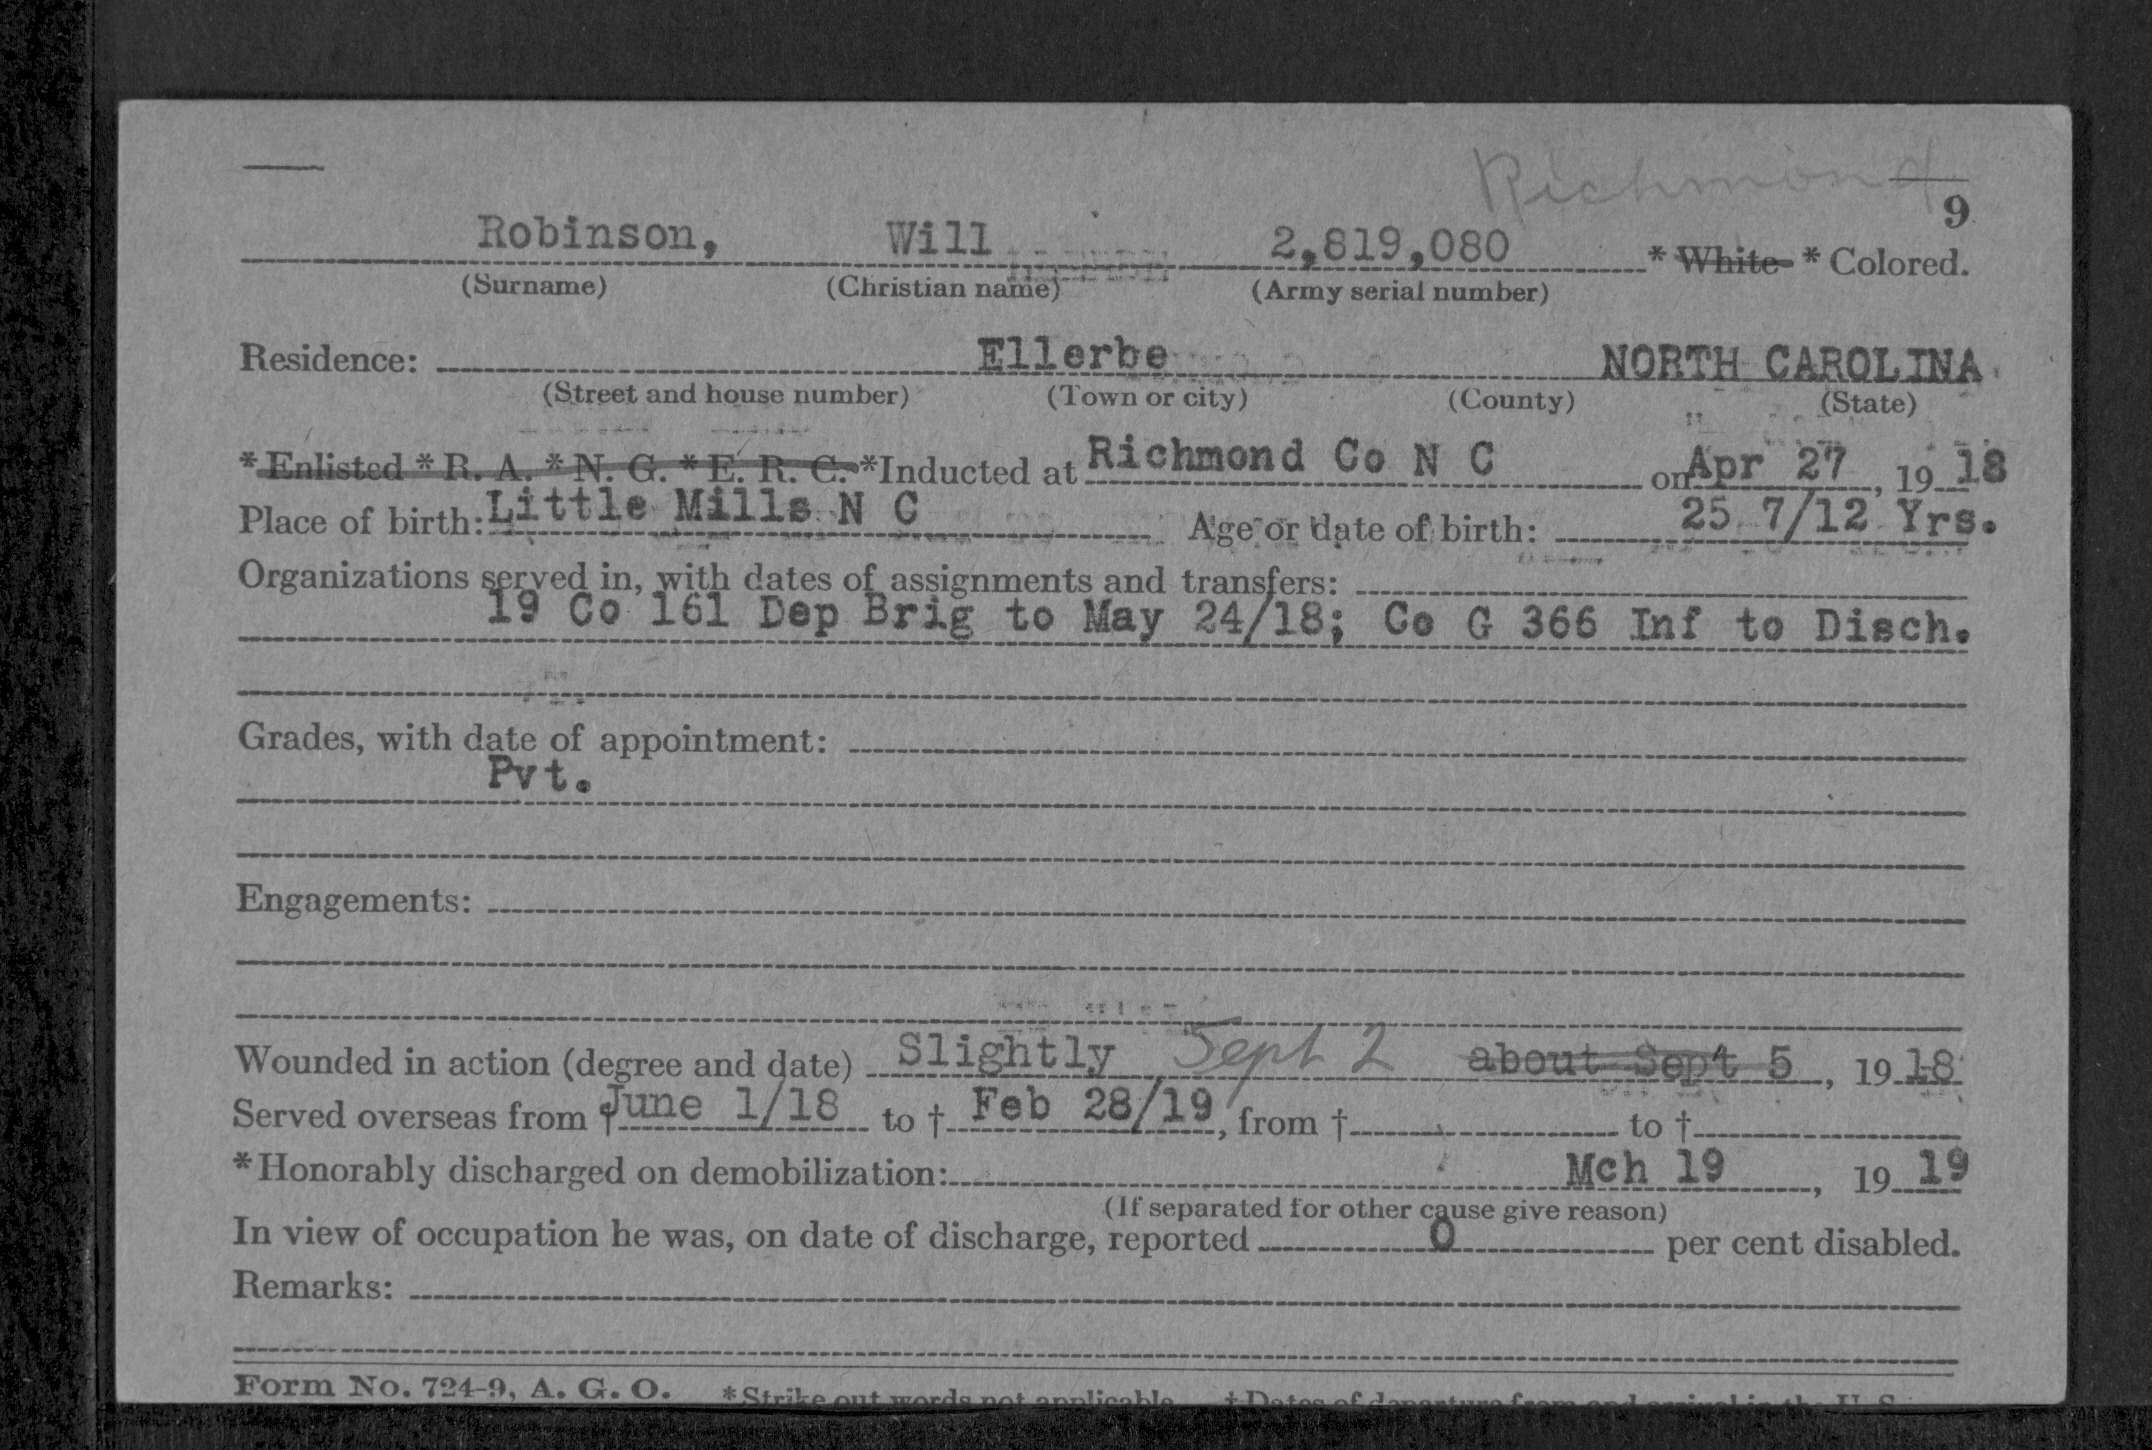 Richmond
9
Robinson, Will 2,819,080 * White * Colored.
(Surname) (Christian name) (Army serial number)
Residence: Ellerbe NORTH CAROLINA
(Street and house number) (Town or city) (County) (State)
*Enlisted *R. A. *N. G. *E. R. C. *Inducted at Richmond Co N C on Apr 27, 19 18
Place of birth: Little Mills N C Age or date of birth: 25 7/12 Yrs.
Organizations served in, with dates of assignments and transfers:
19 Co 161 Dep Brig to May 24/18; Co G 366 Inf to Disch.
Grades, with date of appointment:
Pvt.
Engagements:
Wounded in action (degree and date) Slightly Sept 2 about Sept 5, 19 18
Served overseas from † June 1/18 to † Feb 28/19, from † to †
*Honorably discharged on demobilization: Mch 19, 19 19
(If separated for other cause give reason)
In view of occupation he was, on date of discharge, reported 0 per cent disabled.
Remarks:
Form No. 724-9, A. G. O. *Strike out words not applicable †Dates of departure from and arrival in the U. S.